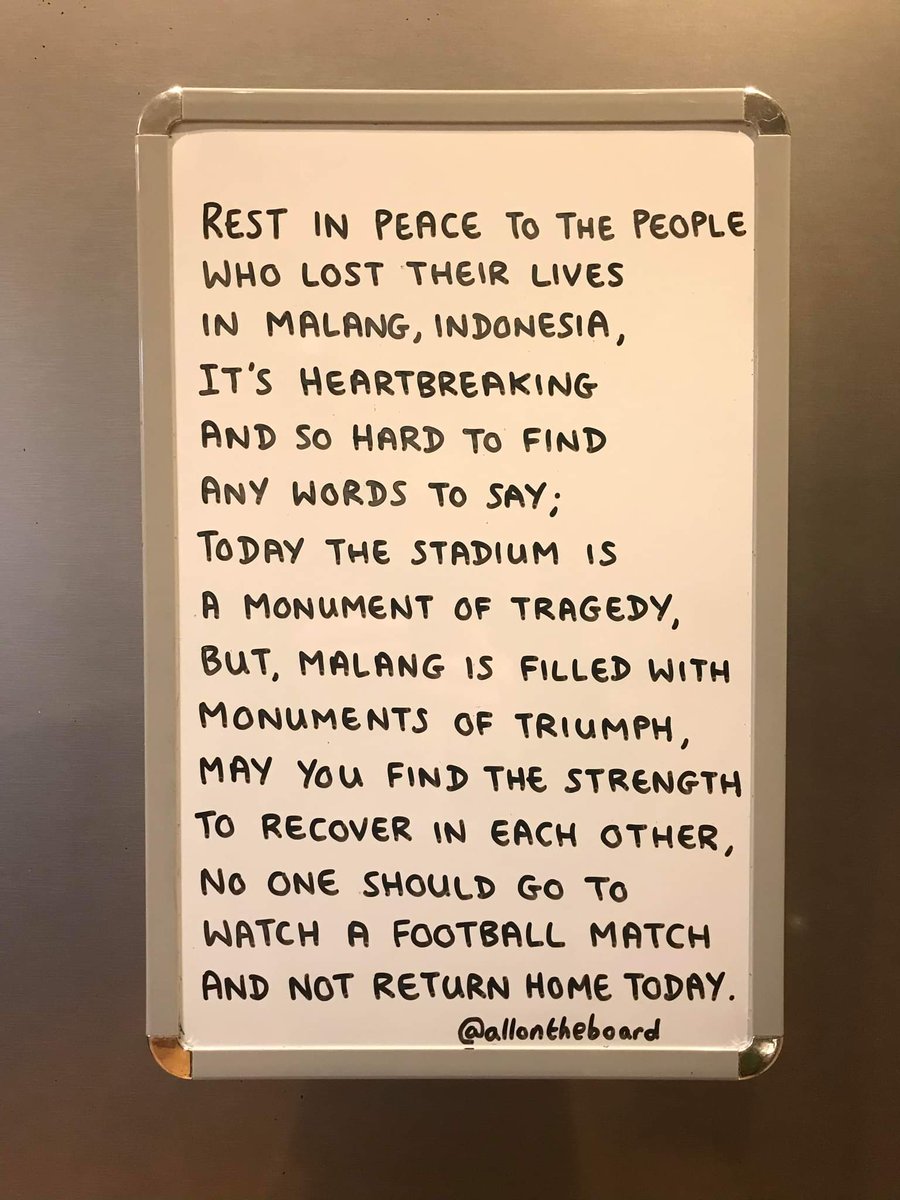 REST IN PEACE TO THE PEOPLE
WHO LOST THEIR LIVES
IN MALANG, INDONESIA,
IT'S HEARTBREAKING
AND SO HARD TO FIND
ANY WORDS TO SAY;
TODAY THE STADIUM IS
A MONUMENT OF TRAGEDY,
BUT, MALANG IS FILLED WITH
MONUMENTS OF TRIUMPH,
MAY YOU FIND THE STRENGTH
TO RECOVER IN EACH OTHER,
NO ONE SHOULD GO TO
WATCH A FOOTBALL MATCH
AND NOT RETURN HOME TODAY.
@allontheboard